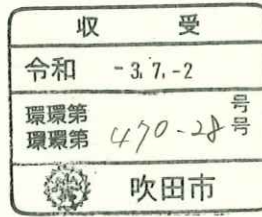 収 受
令和 -3.7.-2
環環第 号
環環第 470-28 号
吹田市